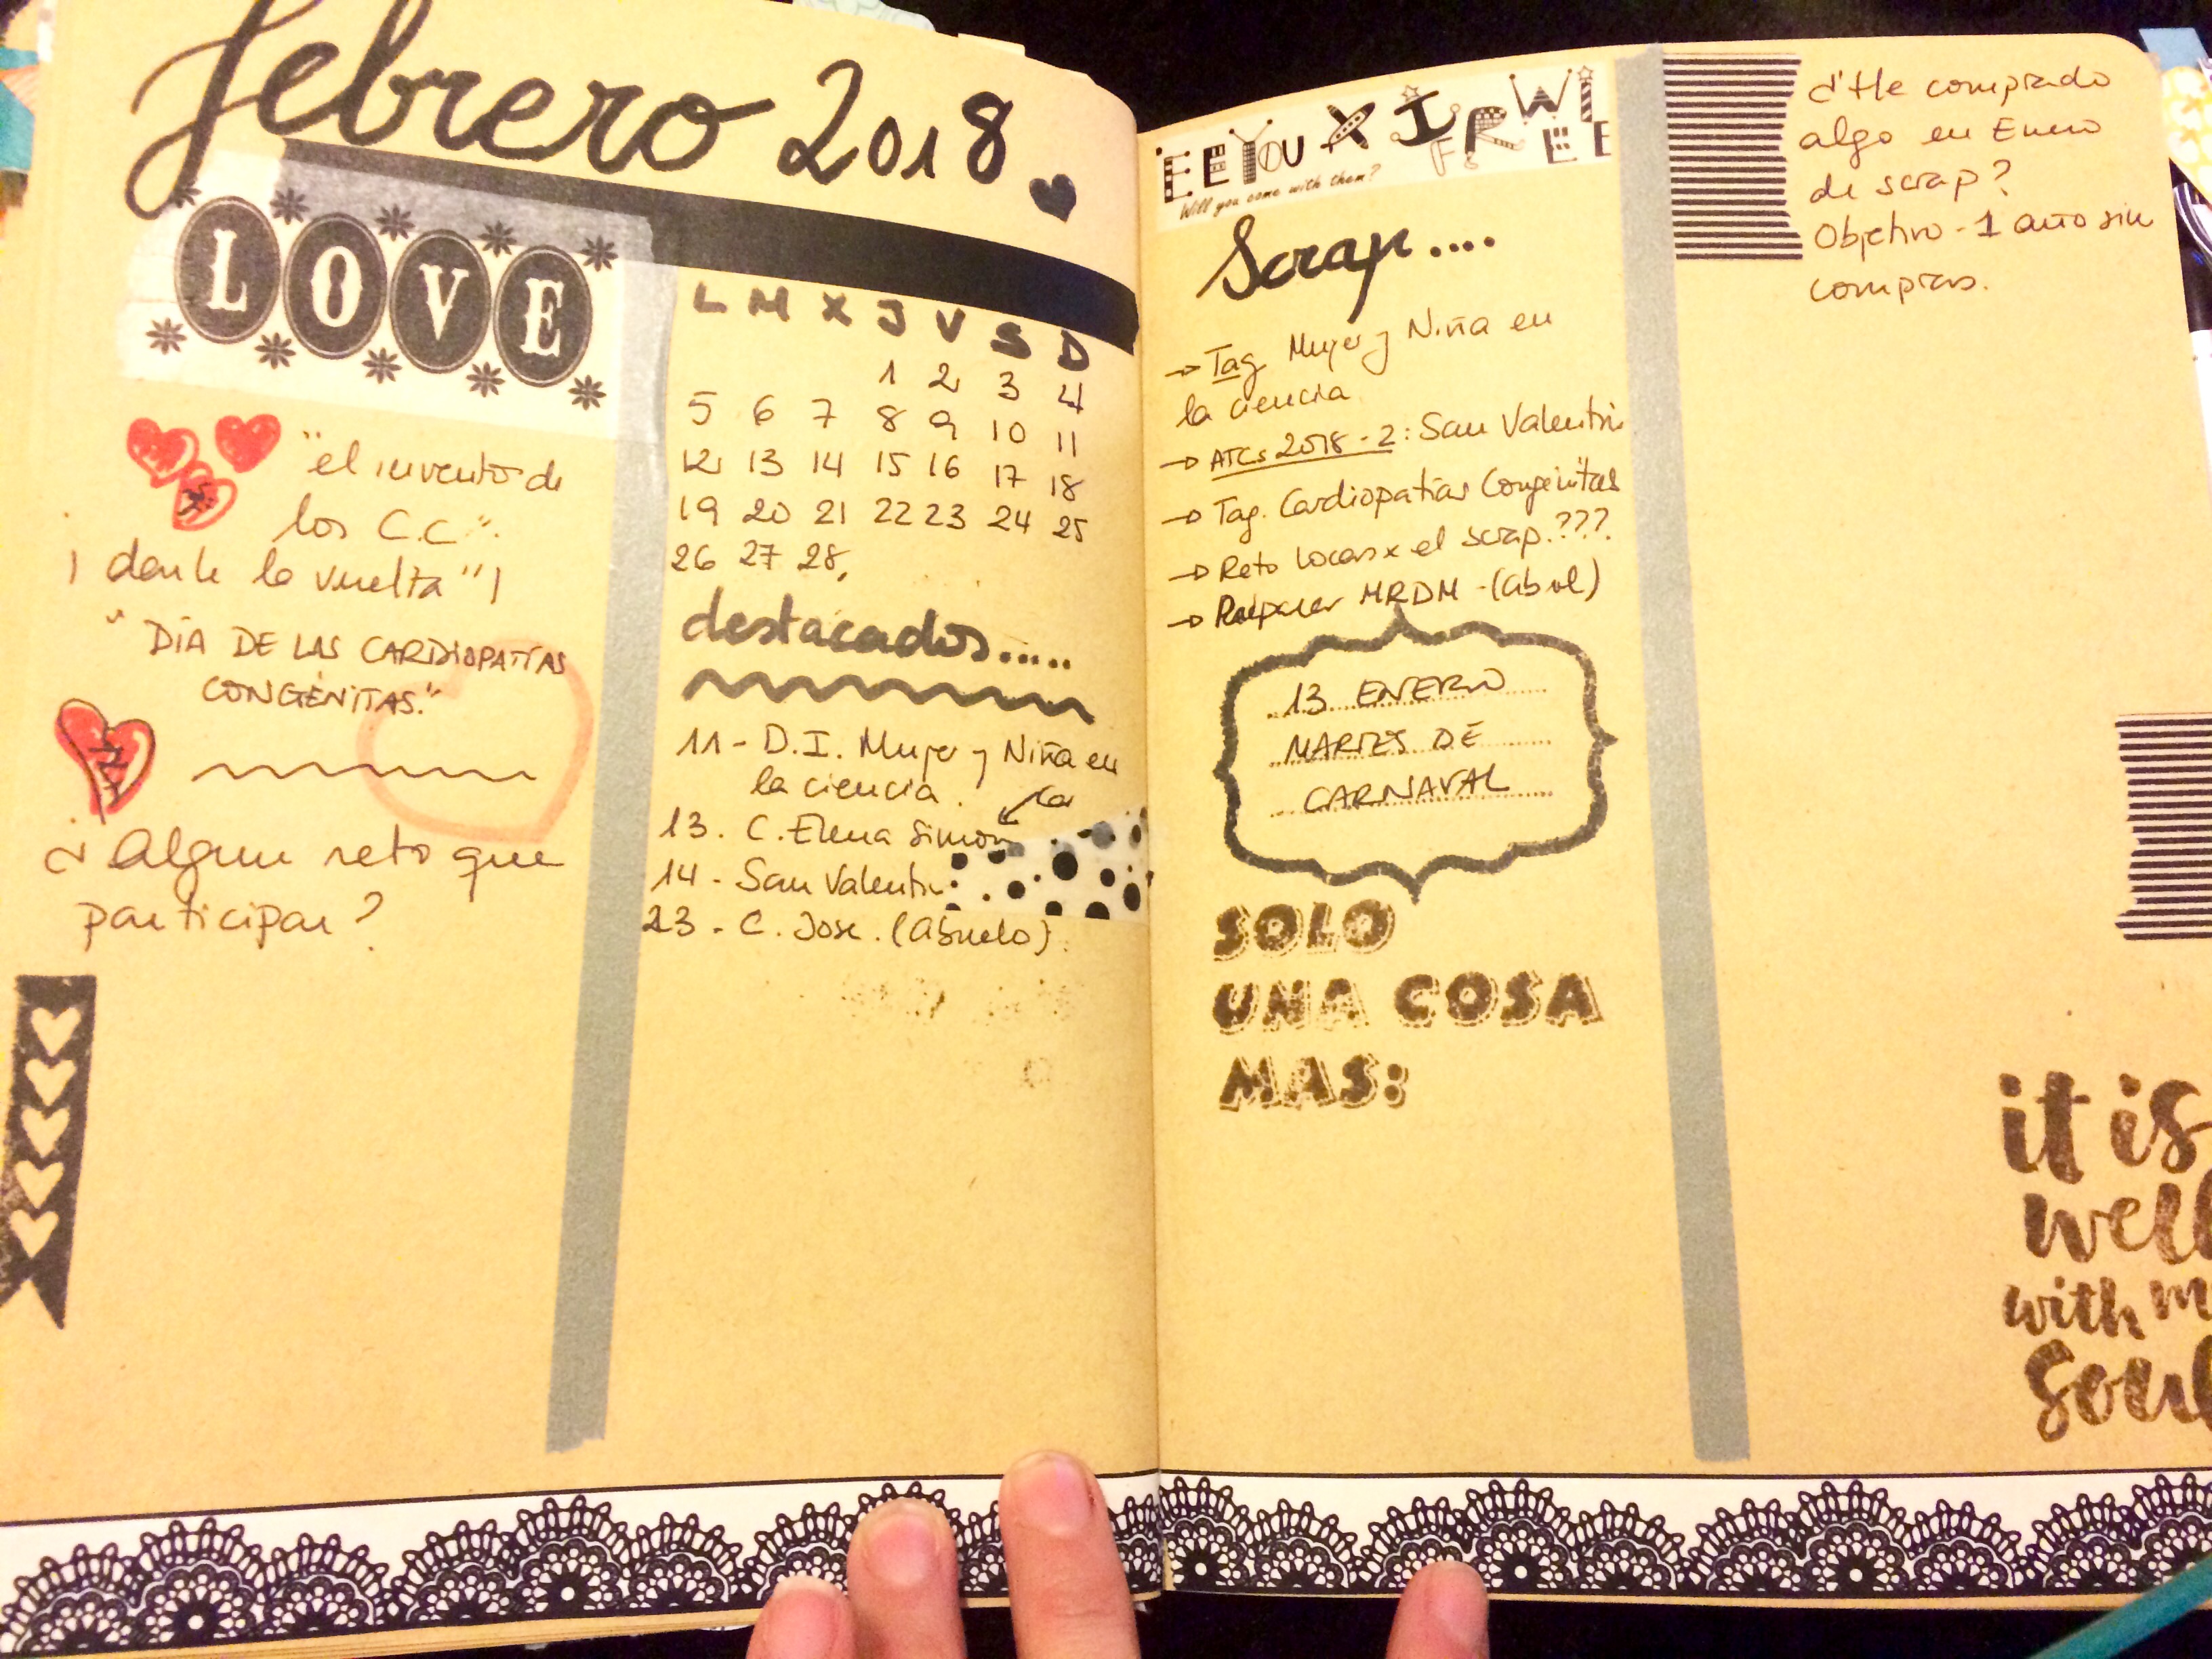 febrero 2018
LOVE
"el invento de
los C.C".
¡ darle la vuelta"!
"DÍA DE LAS CARDIOPATÍAS
CONGÉNITAS."
¿Algun reto que
participar?
L M X J V S D
1 2 3 4
5 6 7 8 9 10 11
12 13 14 15 16 17 18
19 20 21 22 23 24 25
26 27 28.
destacados.....
11- D.I. Mujer y Niña en
la ciencia.
13. C. Elena Simon
14- San Valentin
23- C. Jose. (abuelo)
EE YOU X I R WI
FREE
Will you come with them?
Scrap....
→ Tag Mujer y Niña en
la ciencia
→ ATCs 2018-2: San Valentin
→ Tag. Cardiopatías Congénitas
→ Reto Locas x el scrap.???
→ MRDM -(abril)
13 ENERO
MARTES DE
CARNAVAL
SOLO
UNA COSA
MAS:
¿He comprado
algo en Enero
de scrap?
Objetivo - 1 año sin
compras.
it is
well
with m
soul